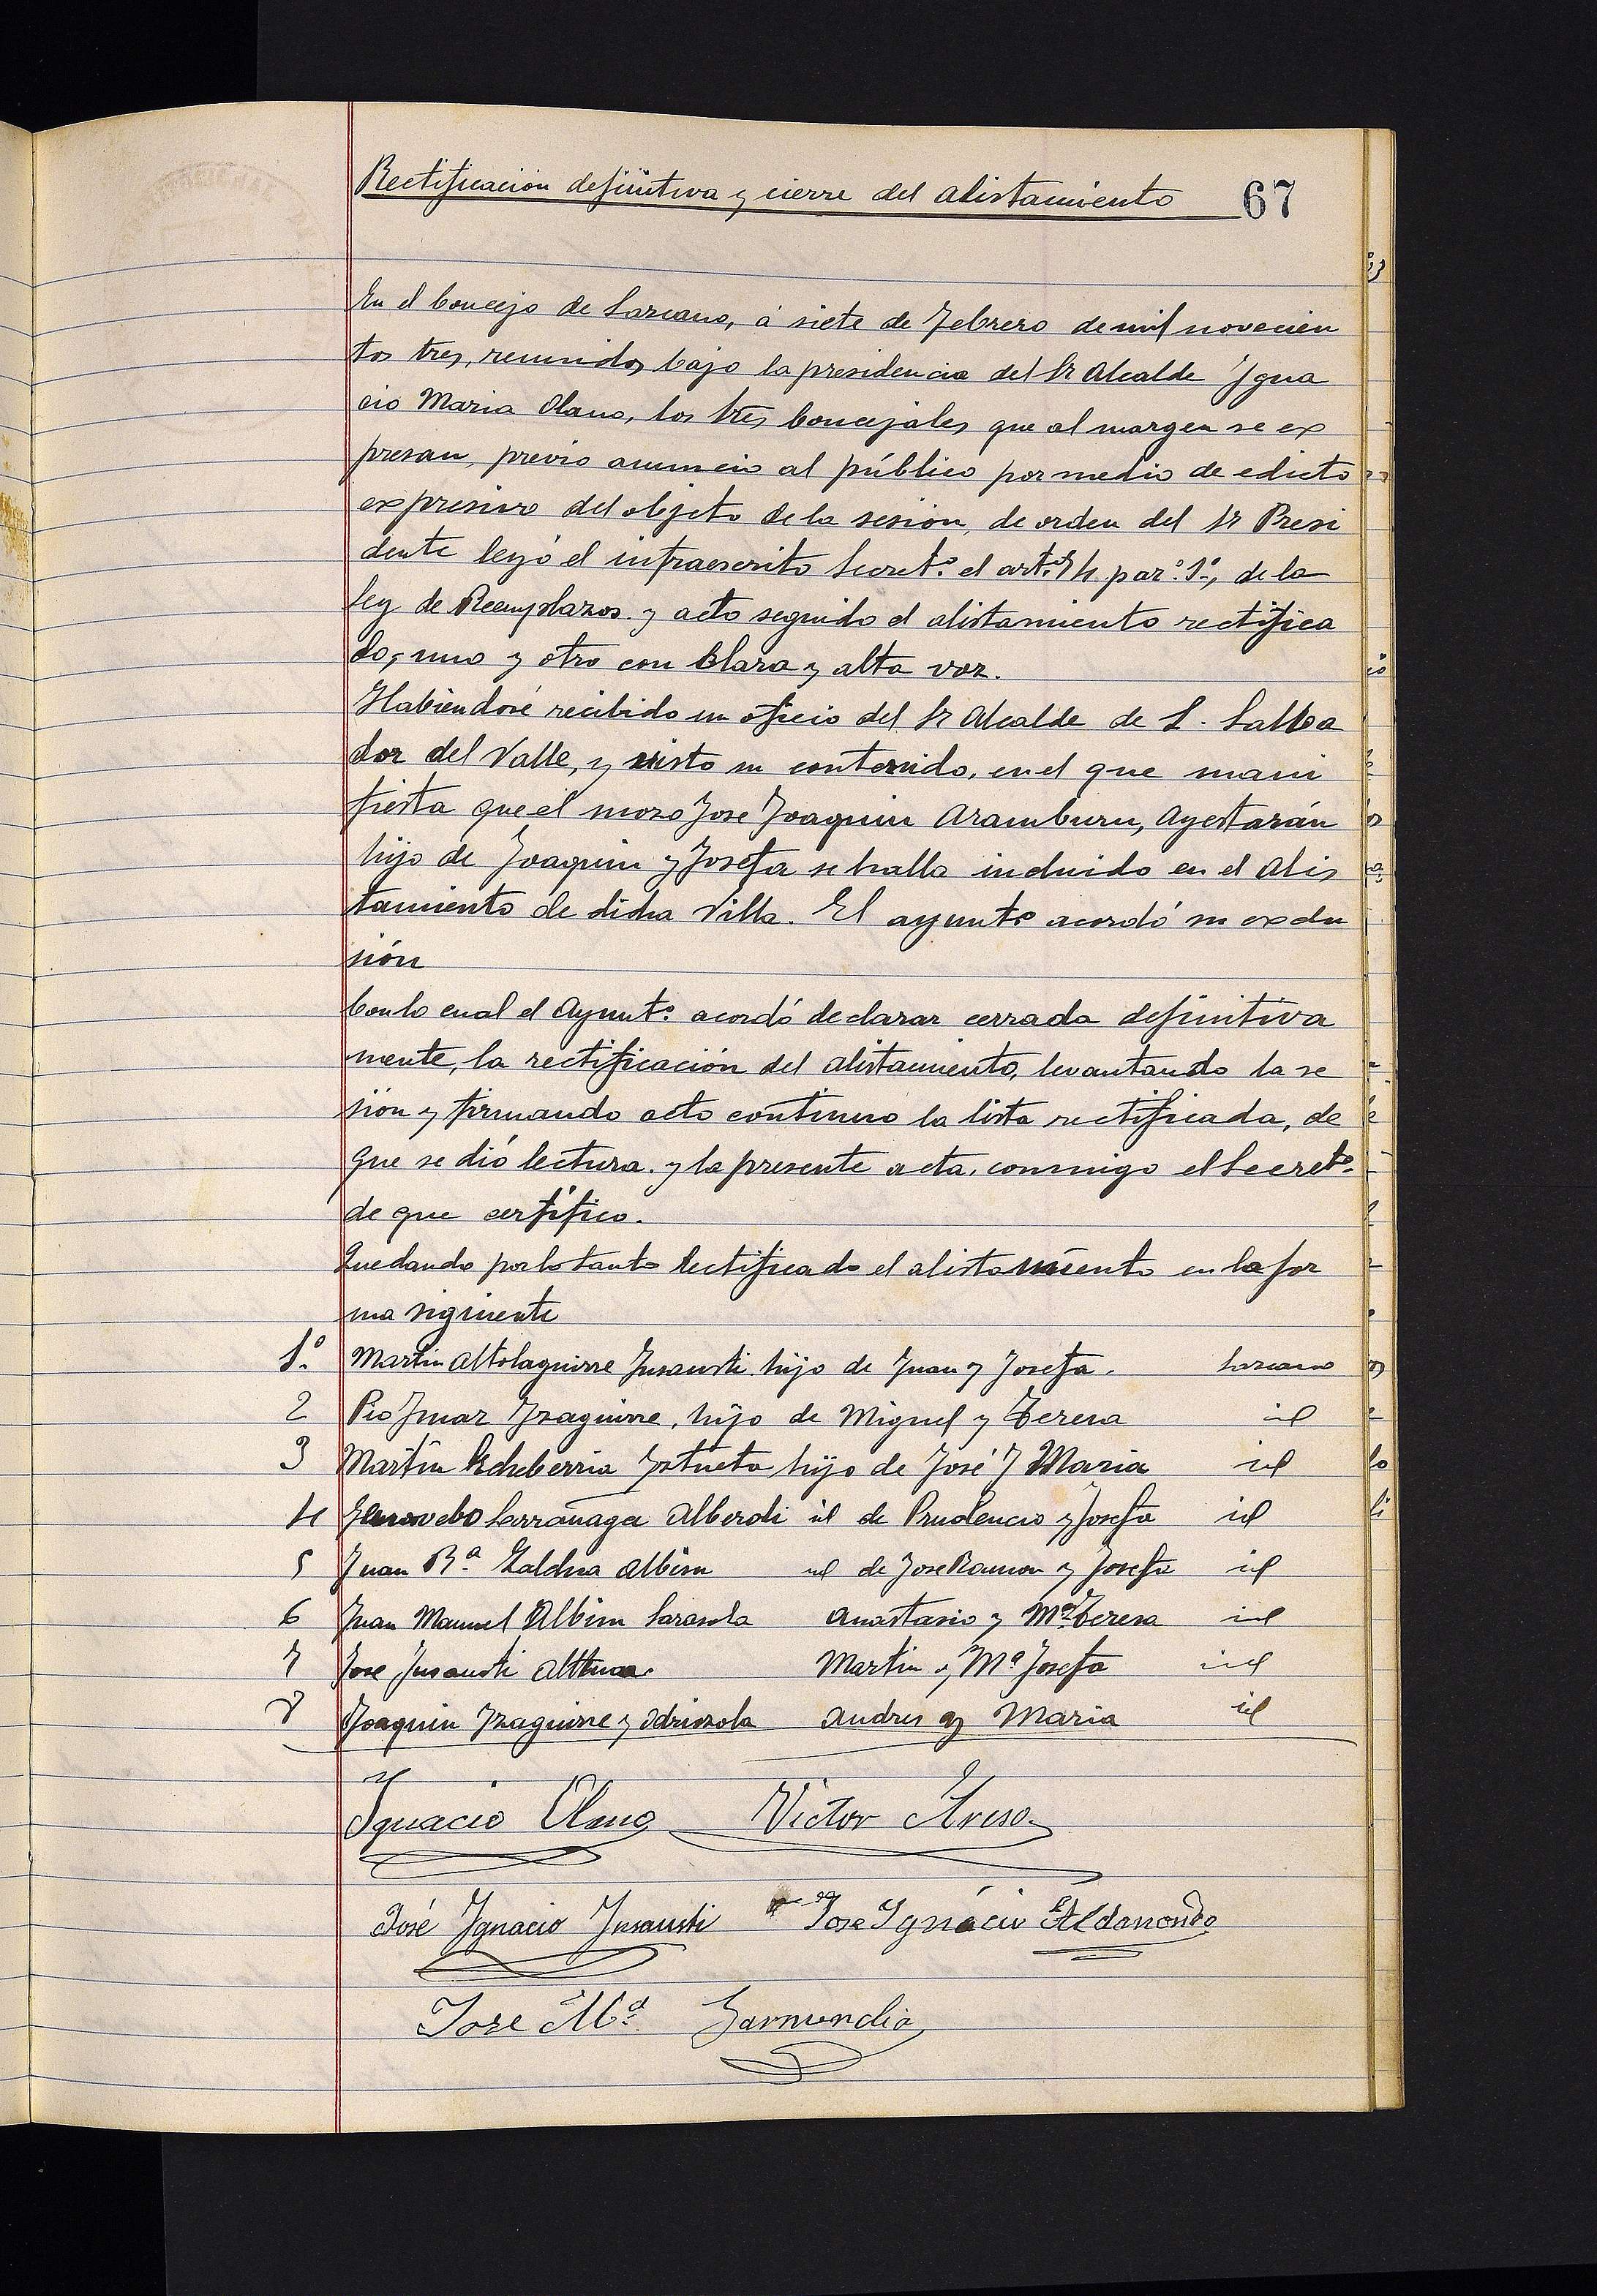 Rectificación definitiva y cierre del alistamiento 67
En el Concejo de Lazcano, á siete de Febrero de mil novecien
tos tres, reunidos bajo la presidencia del Sr Alcalde Ygna
cio Maria Olano, los tres Concejales que al margen se ex
presan, previo anuncio al público por medio de edicto
expresivo del objeto de la sesión, de orden del Sr Presi
dente leyó el infraescrito Secretº el artº 54 parº 1º, de la
ley de Reemplazos y acto seguido el alistamiento rectifica
do, uno y otro con clara y alta voz.
Habiendose recibido un oficio del Sr Alcalde de S. Salba
dor del Valle, y visto su contenido, en el que mani
fiesta que el mozo Jose Joaquin Aramburu, Ayestarán
hijo de Joaquin y Josefa se halla incluido en el alis
tamiento de dicha Villa. El ayuntº acordó su exclu
sión
Con lo cual el Ayuntº acordó declarar cerrada definitiva
mente, la rectificación del alistamiento, levantando la se
sión y firmando acto continuo la lista rectificada, de
que se dió lectura y la presente acta, conmigo el Secretº
de que certifico.
Quedando por lo tanto rectificado el alistamiento en la for
ma siguiente
1º Martin Altolaguirre Insausti hijo de Juan y Josefa. Lazcano
2 Pio Yzaguirre, hijo de Miguel y Teresa id
3 Martin Echeberria Yztueta hijo de José y Maria id
4 Larrañaga Alberdi id de Prudencio y Josefa id
5 Juan Bª Zaldua Albisu id de Jose Ramon y Josefa id
6 Juan Manuel Albisu Sarasola Anastasio y Mª Teresa id
7 Jose Insausti Martin y Mª Josefa id
8 Joaquin Yzaguirre y Odriozola Andres y Maria id
Ignacio Olano Victor
José Ygnacio Insausti Jose Ygnacio Aldanondo
Jose Mª Garmendia